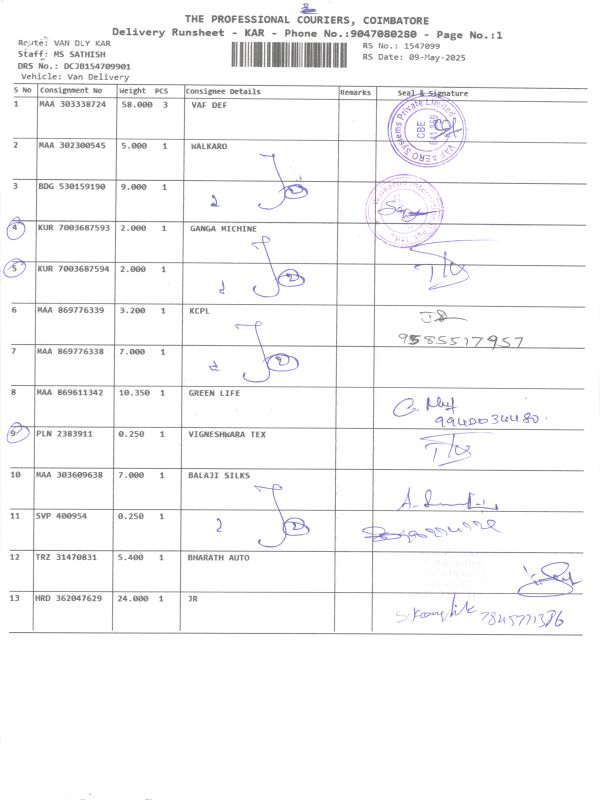 THE PROFESSIONAL COURIERS, COIMBATORE
Delivery Runsheet - KAR - Phone No.:9047080280 - Page No.:1
Route: VAN DLY KAR
Staff: MS SATHISH
DRS No.: DCJB154709901
Vehicle: Van Delivery
RS No.: 1547099
RS Date: 09-May-2025
S No Consignment No Weight PCS Consignee Details Remarks Seal & Signature
1 MAA 303338724 58.000 3 VAF DEF
2 MAA 302300545 5.000 1 WALKARO
3 BDG 530159190 9.000 1
2 2
4 KUR 7003687593 2.000 1 GANGA MICHINE
5 KUR 7003687594 2.000 1
2
6 MAA 869776339 3.200 1 KCPL
9585517957
7 MAA 869776338 7.000 1
2
8 MAA 869611342 10.350 1 GREEN LIFE
9940034480.
9 PLN 2383911 0.250 1 VIGNESHWARA TEX
10 MAA 303609638 7.000 1 BALAJI SILKS
11 SVP 400954 0.250 1
2 2
12 TRZ 31470831 5.400 1 BHARATH AUTO
13 HRD 362047629 24.000 1 JR